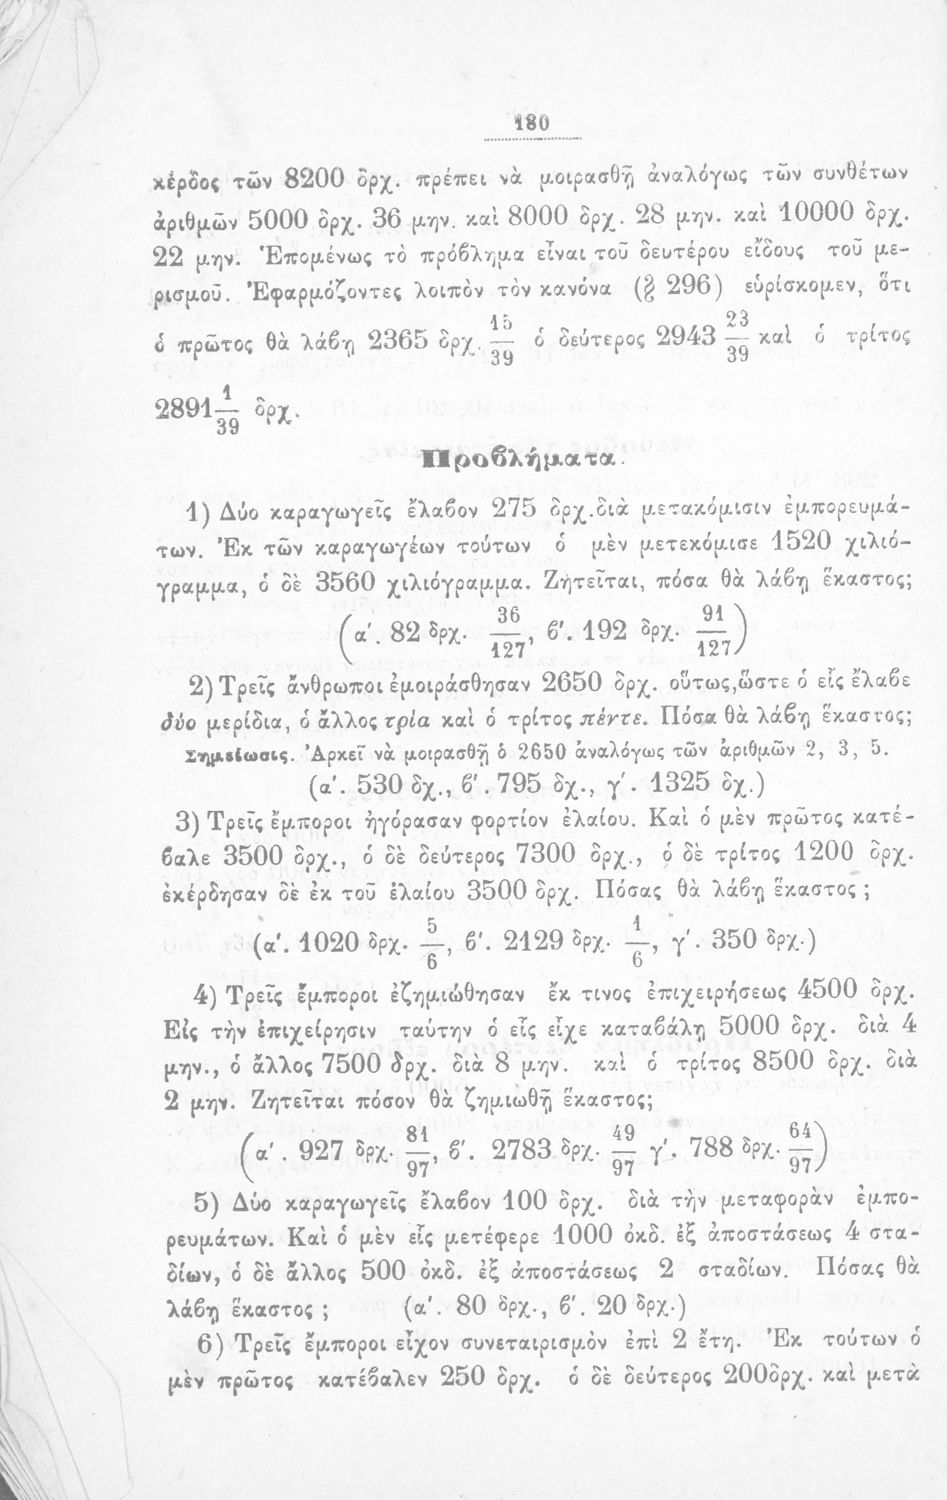 180
κέρδος τῶν 8200 δρχ. πρέπει νὰ μοιρασθῇ ἀναλόγως τῶν συνθέτων
ἀριθμῶν 5000 δρχ. 36 μην. καὶ 8000 δρχ. 28 μην. καὶ 10000 δρχ.
22 μην. Ἑπομένως τὸ πρόβλημα εἶναι τοῦ δευτέρου εἴδους τοῦ με-
ρισμοῦ. Ἐφαρμόζοντες λοιπὸν τὸν κανόνα (§ 296) εὑρίσκομεν, ὅτι
ὁ πρῶτος θὰ λάβῃ 2365 δρχ. 15/39 ὁ δεύτερος 2943 23/39 καὶ ὁ τρίτος
2891 1/39 δρχ.
Προβλήματα.
1) Δύο καραγωγεῖς ἔλαβον 275 δρχ. διὰ μετακόμισιν ἐμπορευμά-
των. Ἐκ τῶν καραγωγέων τούτων ὁ μὲν μετεκόμισε 1520 χιλιό-
γραμμα, ὁ δὲ 3560 χιλιόγραμμα. Ζητεῖται, πόσα θὰ λάβῃ ἕκαστος;
(α'. 82 δρχ. 36/127, β'. 192 δρχ. 91/127)
2) Τρεῖς ἄνθρωποι ἐμοιράσθησαν 2650 δρχ. οὕτως, ὥστε ὁ εἷς ἔλαβε
δύο μερίδια, ὁ ἄλλος τρία καὶ ὁ τρίτος πέντε. Πόσα θὰ λάβῃ ἕκαστος;
Σημείωσις. Ἀρκεῖ νὰ μοιρασθῇ ὁ 2650 ἀναλόγως τῶν ἀριθμῶν 2, 3, 5.
(α'. 530 δχ., β'. 795 δχ., γ'. 1325 δχ.)
3) Τρεῖς ἔμποροι ἠγόρασαν φορτίον ἐλαίου. Καὶ ὁ μὲν πρῶτος κατέ-
βαλε 3500 δρχ., ὁ δὲ δεύτερος 7300 δρχ., ὁ δὲ τρίτος 1200 δρχ.
ἐκέρδησαν δὲ ἐκ τοῦ ἐλαίου 3500 δρχ. Πόσας θὰ λάβῃ ἕκαστος;
(α'. 1020 δρχ. 5/6, β'. 2129 δρχ. 1/6, γ'. 350 δρχ.)
4) Τρεῖς ἔμποροι ἐζημιώθησαν ἔκ τινος ἐπιχειρήσεως 4500 δρχ.
Εἰς τὴν ἐπιχείρησιν ταύτην ὁ εἷς εἶχε καταβάλῃ 5000 δρχ. διὰ 4
μην., ὁ ἄλλος 7500 δρχ. διὰ 8 μην. καὶ ὁ τρίτος 8500 δρχ. διὰ
2 μην. Ζητεῖται πόσον θὰ ζημιωθῇ ἕκαστος;
(α'. 927 δρχ. 81/97, β'. 2783 δρχ. 49/97 γ'. 788 δρχ. 64/97)
5) Δύο καραγωγεῖς ἔλαβον 100 δρχ. διὰ τὴν μεταφορὰν ἐμπο-
ρευμάτων. Καὶ ὁ μὲν εἷς μετέφερε 1000 ὀκδ. ἐξ ἀποστάσεως 4 στα-
δίων, ὁ δὲ ἄλλος 500 ὀκδ. ἐξ ἀποστάσεως 2 σταδίων. Πόσας θὰ
λάβῃ ἕκαστος; (α'. 80 δρχ., β'. 20 δρχ.)
6) Τρεῖς ἔμποροι εἶχον συνεταιρισμὸν ἐπὶ 2 ἔτη. Ἐκ τούτων ὁ
μὲν πρῶτος κατέβαλεν 250 δρχ. ὁ δὲ δεύτερος 200δρχ. καὶ μετὰ